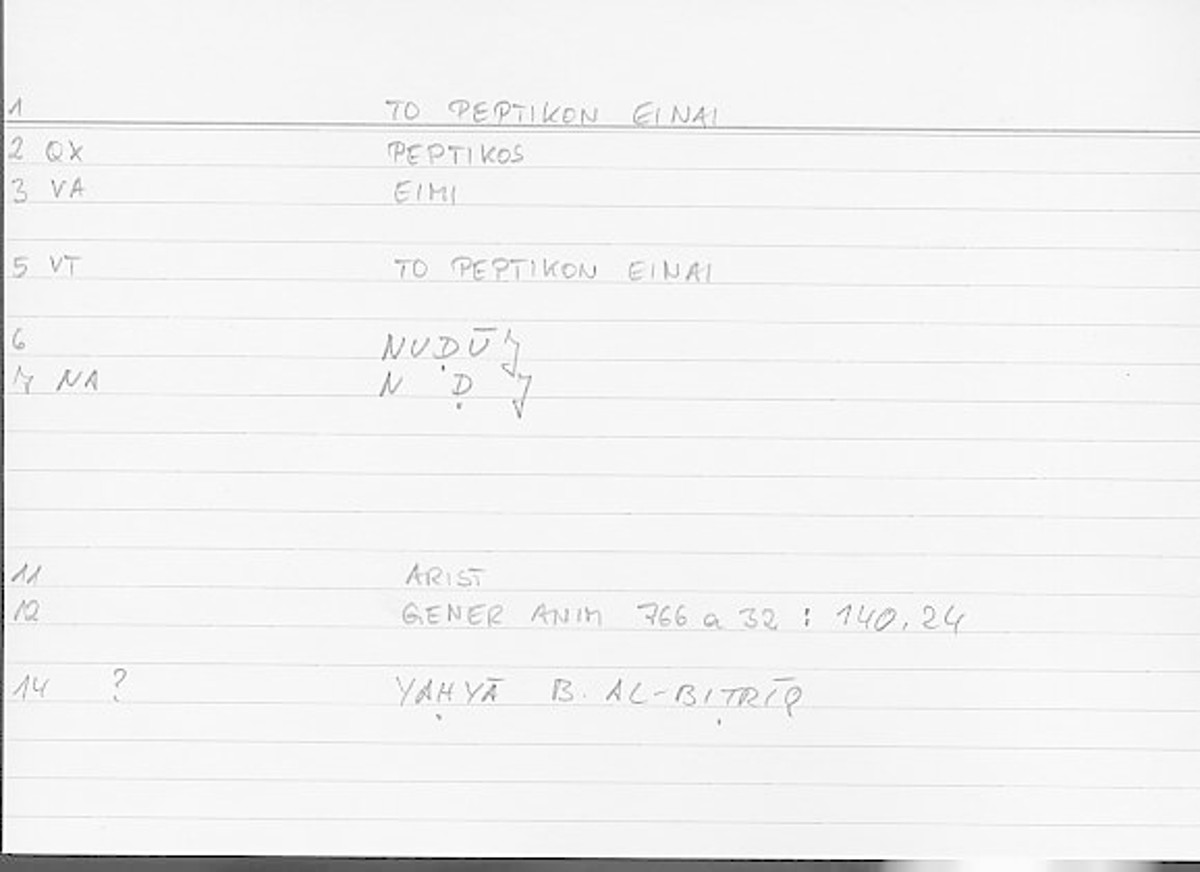 1 TO PEPTIKON EINAI
2 QX PEPTIKOS
3 VA EIMI
5 VT TO PEPTIKON EINAI
6 NUḌŪJ
7 NA N Ḍ J
11 ARIST
12 GENER ANIM 766 a 32 : 140.24
14 ? YAḤYĀ B. AL-BIṬRĪQ